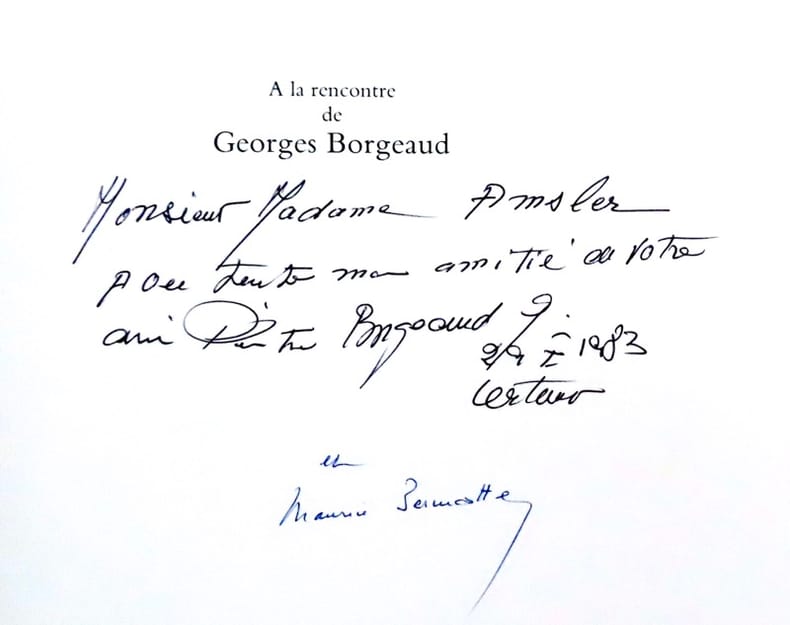 A la rencontre
de
Georges Borgeaud
Monsieur Madame Amsler
toute mon amitié de Votre
ami Peintre Borgeaud G.
1983
et
Maurice Bermotte